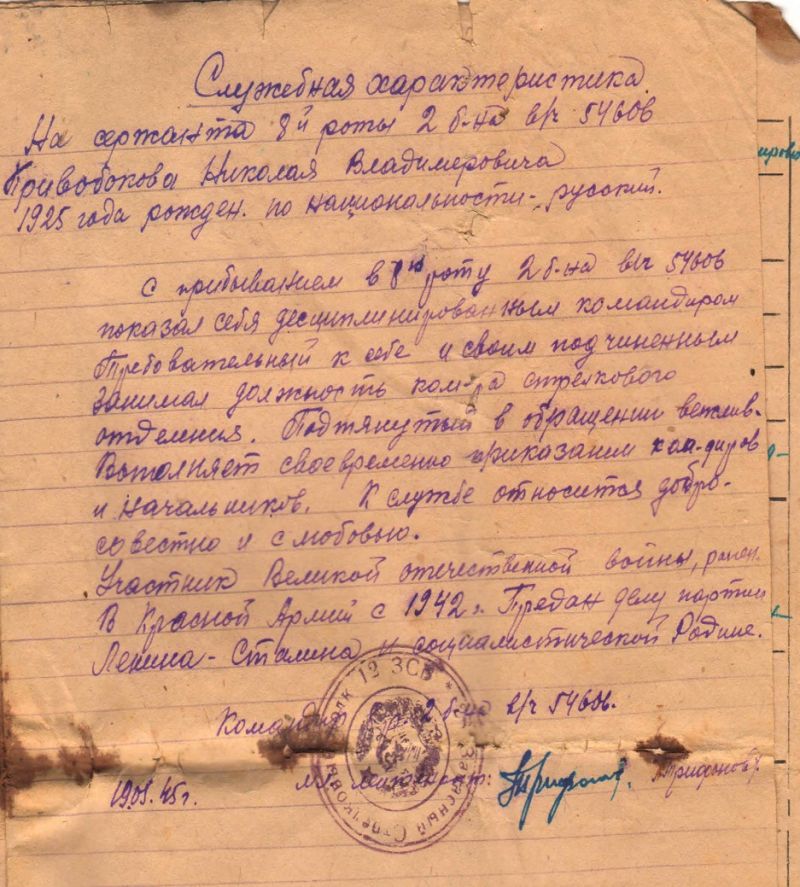 Служебная характеристика.
На сержанта 8й роты 2 б-на в/ч 54606
Кривобокова Николая Владимеровича
1925 года рожден. по национальности- русский.
С прибыванием в 8ю роту 2 б-на в/ч 54606
показал себя десциплинированным командиром
Требовательный к себе и своим подчиненным
занимал должность ком-ра стрелкового
отделения. Подтянутый в обращении вежлив.
Выполняет своевременно приказании ком-диров
и начальников. К службе относится добро-
совестно и с любовью.
Участник Великой отечественной войны, ранен.
В Красной Армий с 1942 г. Предан делу партии
Ленина-Сталина и социалистической Родине.
Командир 2 б-на в/ч 54606.
19.09.45г. мл. лейтенант: Трифонов
12 ЗСД * Запасный Стрелковый